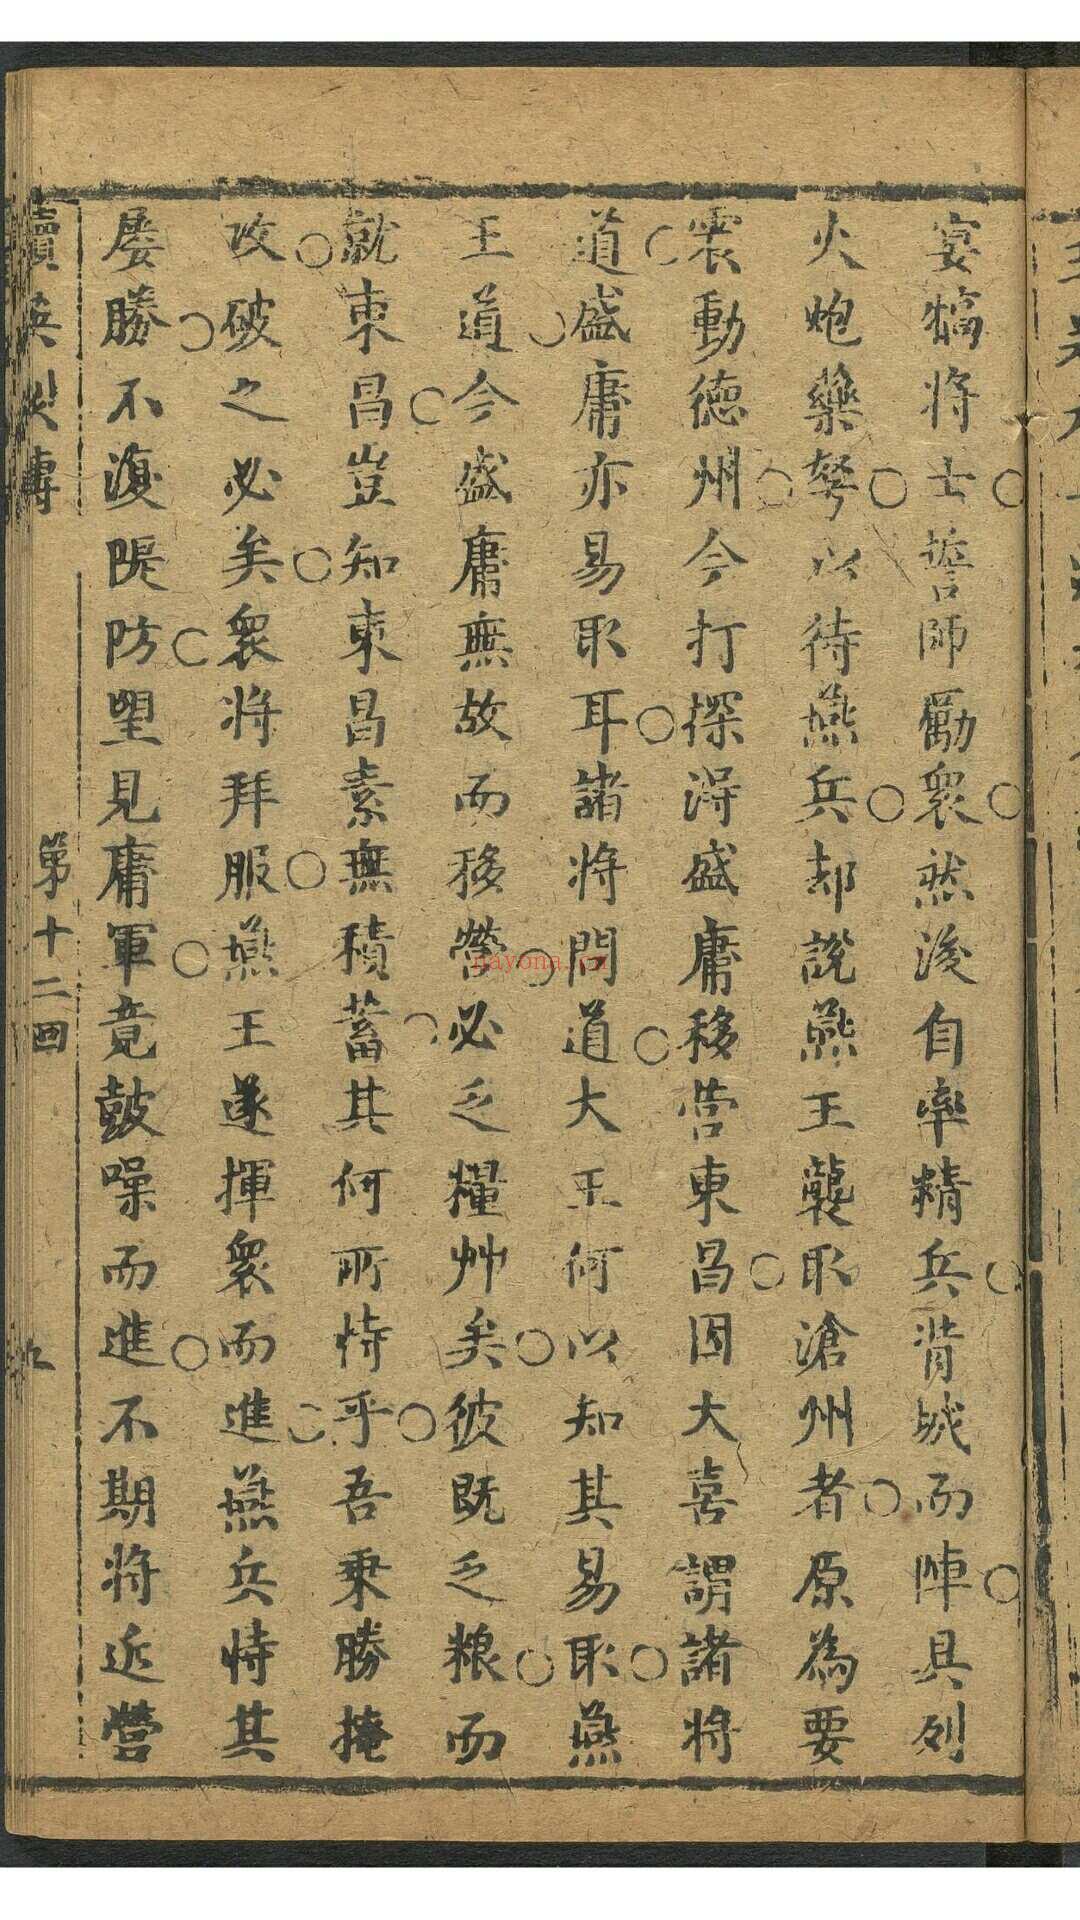 宴犒將士誓師勵衆然後自率精兵背城而陣具列
火炮藥弩以待燕兵却說燕王襲取滄州者原為要
震動德州今打探得盛庸移營東昌因大喜謂諸將
道盛庸亦易取耳諸將問道大王何以知其易取燕
王道今盛庸無故而移營必乏糧艸矣彼既乏粮而
就東昌豈知東昌素無積蓄其何所恃乎吾乘勝掩
攻破之必矣衆將拜服燕王遂揮衆而進燕兵恃其
屡勝不復隄防望見庸軍竟鼓噪而進不期將近營
續英烈傳
第十二回
九
nayona.cn